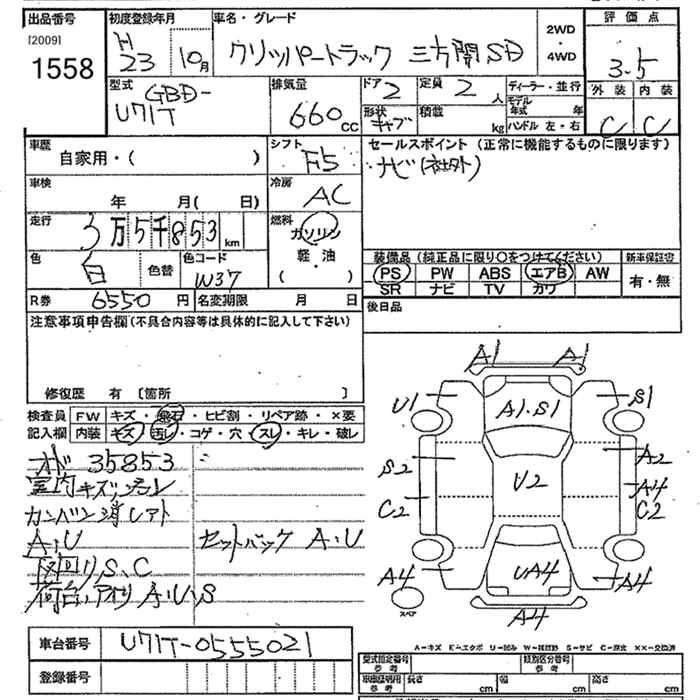 出品番号
[2009]
1558
初度登録年月
H
23 10月
車名・グレード
クリッパートラック 三方開 SD
2WD
・
4WD
評価点
3.5
外装 内装
C C
型式
GBD-
U71T
排気量
660 CC
ドア 2
定員 2 人
形状 キャブ
積載 kg
ディーラー・並行
モデル年式 年
ハンドル 左・右
車歴
自家用・( )
シフト
F5
セールスポイント(正常に機能するものに限ります)
ナビ(社外)
車検
年 月( 日)
冷房
AC
走行
3万5千853km
燃料
ガソリン
軽・油
( )
色
白
色替
色コード
W37
装備品(純正品に限り○をつけてください)
新車保証書
PS PW ABS エアB AW
有・無
SR ナビ TV カワ
R券 6550円
名変期限 月 日
後日品
注意事項申告欄(不具合内容等は具体的に記入して下さい)
修復歴 有 〔箇所 〕
検査員 FW キズ・飛石・ヒビ割・リペア跡・×要
記入欄 内装 キズ・汚レ・コゲ・穴・スレ・キレ・破レ
オド 35853
室内キズ、汚レ
カンバン消しアト
A、U
セットバック A、U
下回り S、C
荷台、アオリ A、U、S
A1 A1
U1 A1・S1 S1
S2 A2
U2 A4
C2 C2
A4 UA4 A4
スペア
A4
車台番号 U71T-0555021
登録番号
A－キズ E－エクボ U－凹み W－補修跡 S－サビ C－腐食 ××－交換済
型式指定番号 参考
類別区分番号 参考
車庫証明用 参考
長さ cm
幅 cm
高さ cm